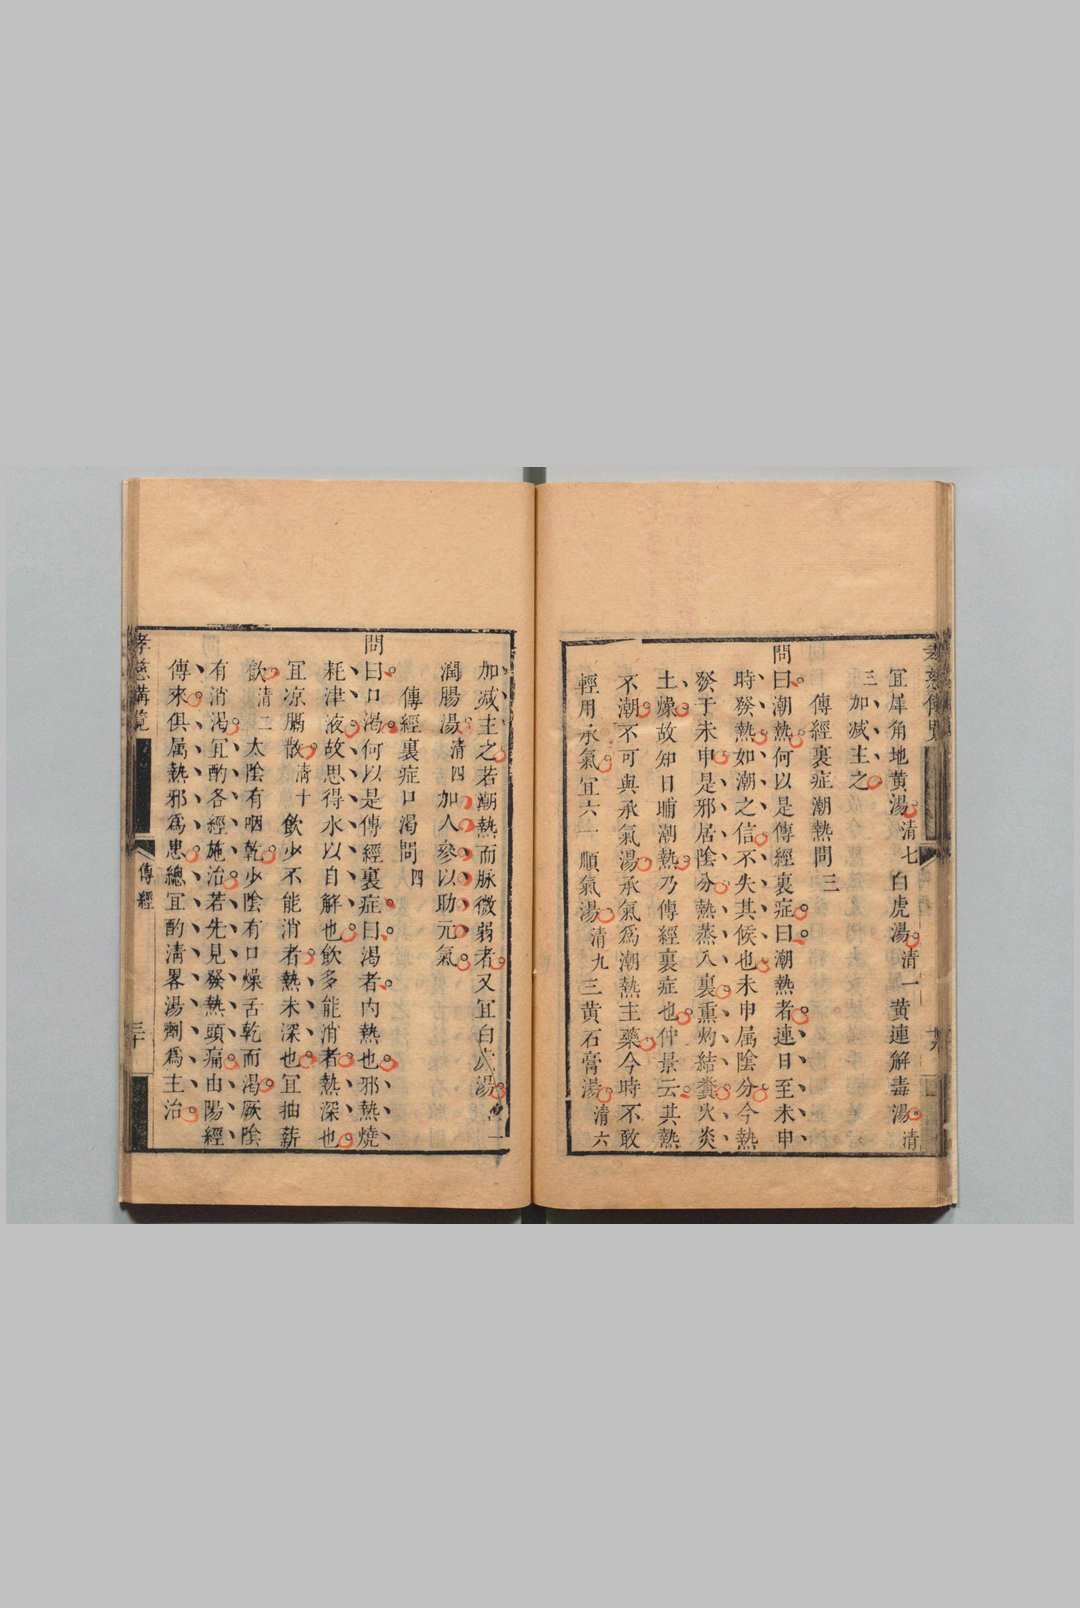 宜犀角地黃湯清七白虎湯清一黃連解毒湯清
三加减主之
傳經裏症潮熱問三
問曰潮熱何以是傳經裏症曰潮熱者連日至未申
時發熱如潮之信不失其候也未申属陰分今熱
發于未申是邪居陰分熱蒸入裏熏灼結糞火炎
土燥故知日晡潮熱乃傳經裏症也仲景云其熱
不潮不可與承氣湯承氣爲潮熱主藥今時不敢
輕用承氣宜六一順氣湯清九三黄石膏湯清六
加减主之若潮熱而脉微弱者又宜白虎湯
潤腸湯清四加人參以助元氣
傳經裏症口渴問四
問曰口渴何以是傳經裏症曰渴者內熱也邪熱燒
耗津液故思得水以自解也飲多能消者熱深也
宜凉膈散清十飲少不能消者熱未深也宜抽薪
飲清二太陰有咽乾少陰有口燥舌乾而渴厥陰
有消渴宜酌各經施治若先見發熱頭痛由陽經
傳來俱属熱邪爲患總宜酌淸畧湯劑爲主治
孝慈備覽
傳經
三十